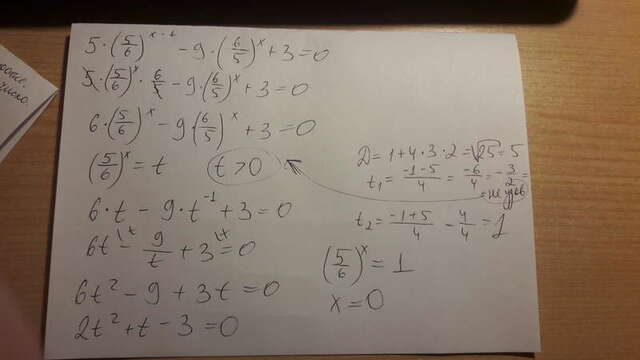 5·(5/6)^(x-1) - 9·(6/5)^x + 3 = 0
5·(5/6)^x · 6/5 - 9·(6/5)^x + 3 = 0
6·(5/6)^x - 9·(6/5)^x + 3 = 0
(5/6)^x = t t > 0
6·t - 9·t^(-1) + 3 = 0
6t - 9/t + 3 = 0
6t² - 9 + 3t = 0
2t² + t - 3 = 0
D = 1 + 4·3·2 = √25 = 5
t₁ = (-1-5)/4 = -6/4 = -3/2 =
= не удов
t₂ = (-1+5)/4 - 4/4 = 1
(5/6)^x = 1
x = 0